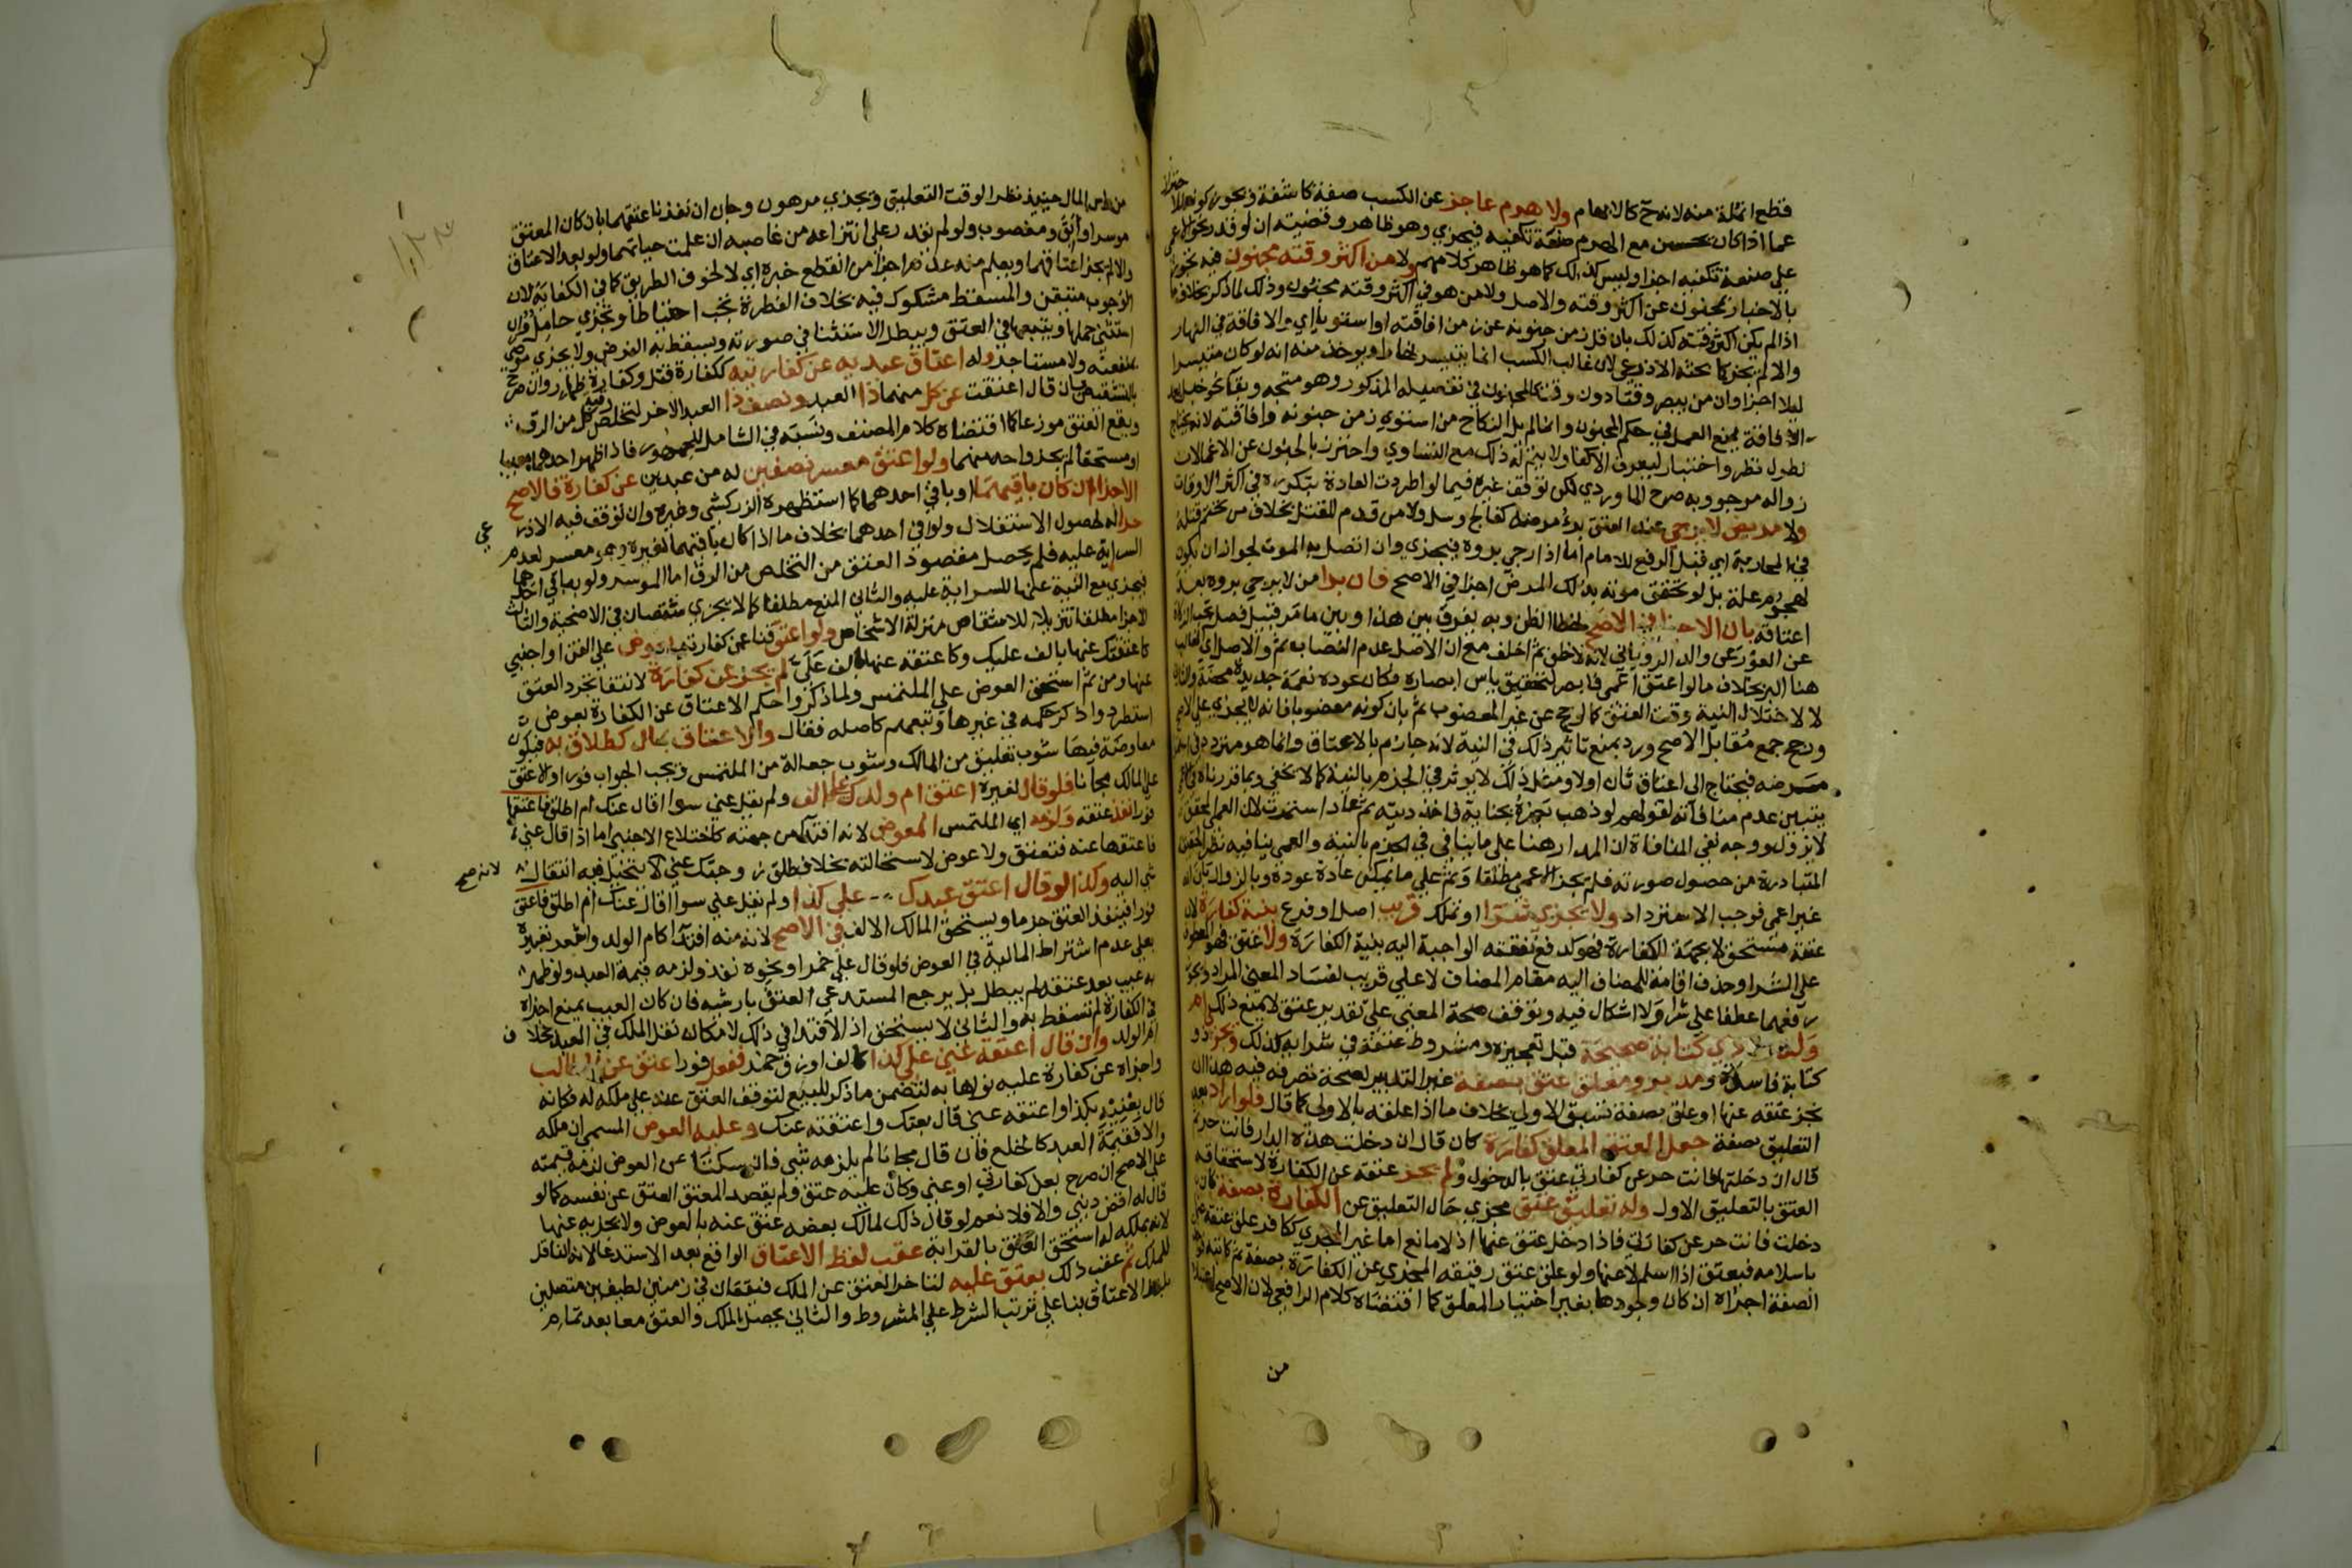 قطع انملة منه لانه ح كالابهام ولا هرم عاجز عن الكسب صفة كاشفة ويجوز كونه للاحترازا
عما اذا كان يحسن مع الهرم صنعة تكفيه فيجزي وهو ظاهر وقضيته ان لو قدر نحو اعمى
على صنعة تكفيه اجزا وليس كذلك كما هو ظاهر كلامهم ولا من اكثر وقته مجنون فيه تجوز
بالاخبار بمجنون عن اكثر وقته والاصل ولا من هو في اكثر وقته مجنون وذلك لما ذكر بخلاف ما
اذا لم يكن اكثر وقته كذلك بان قل زمن جنونه عن زمن افاقته او استويا اي والافاقة في النهار
والا لم يجز كما بحثه الاذرعي لان غالب الكسب انما يتيسر نهارا ويوخذ منه انه لو كان متيسرا
ليلا اجزا وان من يبصر وقتا دون وقت كالمجنون في تفصيله المذكور وهو متجه وبقا نحو خبل بعد
الافاقة يمنع العمل في حكم المجنون وانما لم يل النكاح من استوى زمن جنونه وافاقته لانه يحتاج
لطول نظر واختبار ليعرف الاكفا ولا يتم له ذلك مع التساوي واحترز بالجنون عن الاغما لان
زواله مرجو وبه صرح الماوردي لكن توقف غيره فيما لو اطردت العادة بتكرره في اكثر الاوقات
ولا مريض لا يرجى عند العتق برء مرضه كفالج وسل ولا من قدم للقتل بخلاف من تحتم قتله
في المحاربة اي قبل الرفع للامام اما اذا رجي بروه فيجزي وان اتصل به الموت لجواز ان يكون
لهجوم علة بل لو تحقق موته بذلك المرض اجزا في الاصح فان برا من لا يرجى بروه بعد
اعتاقه بان الاجزا في الاصح لخطا الظن وبه يفرق بين هذا وبين ما مر قبيل فصل تجب الزكاة
عن الفوري عن والد الروياني لانه لا ظن ثم اخلف مع ان الاصل عدم القضا به ثم والاصل اي الغالب
هنا البر بخلاف ما لو اعتق اعمى فابصر لتحقيق ياس ابصاره فكان عوده نعمة جديدة محضة والثاني
لا لاختلال النية وقت العتق كما لو حج عن غير المعضوب ثم بان كونه معضوبا فانه لا يجزي على الاصح
ورجح جمع مقابل الاصح ورد بمنع تاثير ذلك في النية لانه جازم بالاعتاق وانما هو متردد في انه
مرضه فيحتاج الى اعتاق ثان اولا ومثل ذلك لا يوثر في الجزم بالنية كما لا يخفى وبما قررناه في الاعمى
يتبين عدم منافاته لقولهم لو ذهب بصره بجناية فاخذ ديته ثم عاد استردت لان العمى المحقق
لا يزول ووجه نفي المنافاة ان المدار هنا على ما ينافي في الجزم بالنية والعمى ينافيه نظرا لتحقق
المتبادرة من حصول صورته فلم يجز الاعمى مطلقا وثم على ما يمكن عادة عوده وبالزوال بان انه
غير اعمى فوجب الاسترداد ولا يجزي شرا او تملك قريب اصل او فرع بنية كفارة لان
عتقه مستحق لا بجهة الكفارة فهو كدفع نفقته الواجبة اليه بنية الكفارة ولا عتق فهو معطوف
على الشرا وحذف اقامة للمضاف اليه مقام المضاف لا على قريب لفساد المعنى المراد ويجوز
رفعهما عطفا على شرا ولا اشكال فيه وتوقف صحة المعنى على تقدير عتق لا يمنع ذلك ام
ولد ولا ذي كتابة صحيحة قبل تعجيزه ومشروط عتقه في شرايه كذلك ويجزي ذو
كتابة فاسدة ومدبر ومعلق عتق بصفة غير التدبير لصحة تصرفه فيه هذا ان
نجز عتقه عنها او علق بصفة تسبق الاولى بخلاف ما اذا علقه بالاولى كما قال فلو اراد بعد
التعليق بصفة جعل العتق المعلق كفارة كان قال ان دخلت هذه الدار فانت حر ثم
قال ان دخلتها فانت حر عن كفارتي عتق بالدخول ولم يجز عتقه عن الكفارة لاستحقاقه
العتق بالتعليق الاول وله تعليق عتق مجزي حال التعليق عن الكفارة بصفة كان
دخلت فانت حر عن كفارتي فاذا دخل عتق عنها اذ لا مانع اما غير المجزي ككافر علق عتقه على
باسلامه فيعتق اذا اسلم لا عنها ولو علق عتق رقيقه المجزي عن الكفارة بصفة ثم كاتبه فوجدت
الصفة اجزاه ان كان وجودها بغير اختيار المعلق كما اقتضاه كلام الرافعي لان الاصح اعتبار
من
من راس المال حينيذ نظرا لوقت التعليق ويجزي مرهون وجان ان نفذنا عتقهما بان كان المعتق
موسرا وابق ومغصوب ولو لم نقدر على انتزاعه من غاصبه ان علمت حياتهما ولو بعد الاعتاق
والا لم يجز اعتاقهما ويعلم منه عدم اجزا من انقطع خبره اي لا لخوف الطريق كما في الكفاية لان
الوجوب متيقن والمسقط مشكوك فيه بخلاف الفطرة تجب احتياطا ويجزي حامل وان
استثنى حملها ويتبعها في العتق ويبطل الاستثنا في صورته ويسقط به الفرض ولا يجزي موصى
بمنفعته ولا مستاجر وله اعتاق عبديه عن كفارتيه ككفارة قتل وكفارة ظهار وان صرح
بالتشقيص بان قال اعتقت عن كل منهما ذا العبد ونصف ذا العبد الاخر لتخلص رقبة كل من الرق
ويقع العتق موزعا كما اقتضاه كلام المصنف ونسبه في الشامل للجمهور فاذا ظهر احدهما معيبا
او مستحقا لم يجز واحد منهما ولو اعتق معسر نصفين له من عبدين عن كفارة فالاصح
الاجزا ان كان باقيهما او باقي احدهما كما استظهره الزركشي وغيره وان توقف فيه الاذرعي
حرا له لحصول الاستقلال ولو في احدهما بخلاف ما اذا كان باقيهما لغيره وهو معسر لعدم
السراية عليه فلم يحصل مقصود العتق من التخلص من الرق اما الموسر ولو بما في احدهما
فيجزي مع النية عنها للسراية عليه والثاني المنع مطلقا كما لا يجزي شقصان في الاضحية والثالث
الاجزا مطلقا تنزيلا للاشقاص منزلة الاشخاص ولو اعتق قنا عن كفارته بعوض على القن او اجنبي
كاعتقتك عنها بالف عليك وكاعتقه عنها بالف علي لم يجز عن كفارة لانتفا تجرد العتق
عنها ومن ثم استحق العوض على الملتمس ولما ذكروا حكم الاعتاق عن الكفارة بعوض
استطردوا ذكر حكمه في غيرها وتبعهم كاصله فقال والاعتاق بمال كطلاق به فيكون
معاوضة فيها شوب تعليق من المالك وشوب جعالة من الملتمس ويجب الجواب فورا والا عتق
على المالك مجانا فلو قال لغيره اعتق ام ولدك على الف ولم يقل عني سوا اقال عنك ام اطلق فاعتقها
فورا نفذ عتقه ولزمه اي الملتمس العوض لانه افتدا من جهته كاختلاع الاجنبي اما اذا قال عني
فاعتقها عنه فتعتق ولا عوض لاستحالته بخلاف طلق زوجتك عني لانه لا يتخيل فيه انتقال
شي اليه وكذا لو قال اعتق عبدك على كذا ولم يقل عني سوا اقال عنك ام اطلق فاعتق
فورا فينفذ العتق جزما ويستحق المالك الالف في الاصح لانه منه افتدا كام الولد واشعر تعبيره
بعلى عدم اشتراط المالية في العوض فلو قال على خمر او نحوه نفذ ولزمه قيمة العبد ولو ظهر
به عيب بعد عتقه لم يبطل بل يرجع المستدعي العتق بارشه فان كان العيب يمنع اجزاه
في الكفارة لم تسقط به والثاني لا يستحق اذ لا افتدا في ذلك لامكان نقل الملك في العبد بخلاف
ام الولد وان قال اعتقه عني على كذا كالف او زق خمر ففعل فورا عتق عن الطالب
واجزاه عن كفارة عليه نواها به لتضمن ما ذكر للبيع لتوقف العتق عنه على ملكه له فكانه
قال بعنيه بكذا واعتقه عني قال بعتك واعتقته عنك وعليه العوض المسمى ان ملكه
والا فقيمة العبد كالخلع فان قال مجانا لم يلزمه شي فان سكتا عن العوض لزمه قيمته
على الاصح ان صرح بعن كفارتي او عني وكان عليه عتق ولم يقصد المعتق العتق عن نفسه كما لو
قال له اقض ديني والا فلا نعم لو قال ذلك لمالك بعضه عتق عنه بالعوض ولا يجزيه عنها
لانه بملكه له استحق العتق بالقرابة عقب لفظ الاعتاق الواقع بعد الاستدعا لانه الناقل
للملك ثم عقب ذلك يعتق عليه لتاخر العتق عن الملك فيقعان في زمنين لطيفين متصلين
بلفظ الاعتاق بنا على ترتب الشرط على المشروط والثاني يحصل الملك والعتق معا بعد تمام